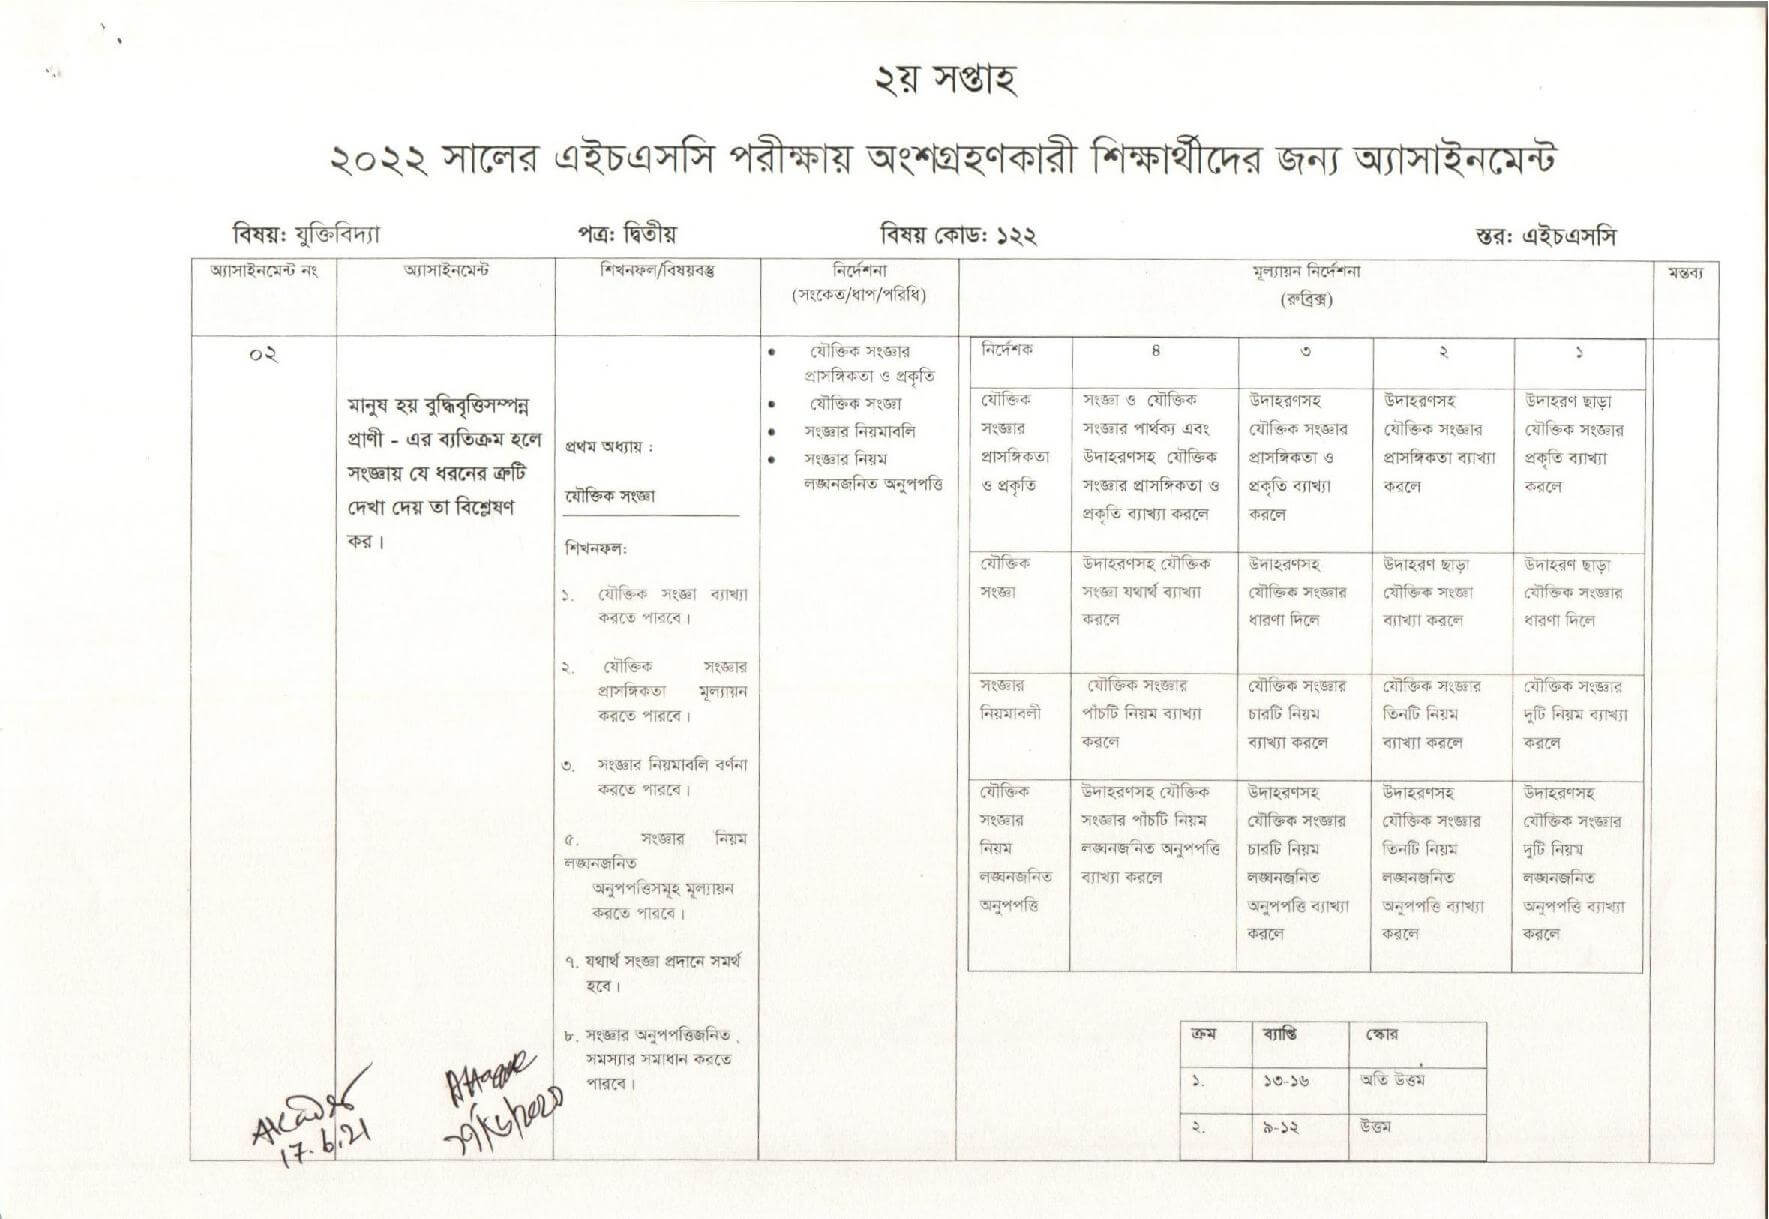 ২য় সপ্তাহ
২০২২ সালের এইচএসসি পরীক্ষায় অংশগ্রহণকারী শিক্ষার্থীদের জন্য অ্যাসাইনমেন্ট
বিষয়: যুক্তিবিদ্যা
পত্র: দ্বিতীয়
বিষয় কোড: ১২২
স্তর: এইচএসসি
অ্যাসাইনমেন্ট নং
অ্যাসাইনমেন্ট
শিখনফল/বিষয়বস্তু
নির্দেশনা
(সংকেত/ধাপ/পরিধি)
মূল্যায়ন নির্দেশনা
(রুব্রিক্স)
মন্তব্য
০২
মানুষ হয় বুদ্ধিবৃত্তিসম্পন্ন
প্রাণী - এর ব্যতিক্রম হলে
সংজ্ঞায় যে ধরনের ত্রুটি
দেখা দেয় তা বিশ্লেষণ
কর।
প্রথম অধ্যায় :
যৌক্তিক সংজ্ঞা
শিখনফল:
১. যৌক্তিক সংজ্ঞা ব্যাখ্যা
করতে পারবে।
২. যৌক্তিক সংজ্ঞার
প্রাসঙ্গিকতা মূল্যায়ন
করতে পারবে।
৩. সংজ্ঞার নিয়মাবলি বর্ণনা
করতে পারবে।
৫. সংজ্ঞার নিয়ম
লঙ্ঘনজনিত
অনুপপত্তিসমূহ মূল্যায়ন
করতে পারবে।
৭. যথার্থ সংজ্ঞা প্রদানে সমর্থ
হবে।
৮. সংজ্ঞার অনুপপত্তিজনিত
সমস্যার সমাধান করতে
পারবে।
• যৌক্তিক সংজ্ঞার
প্রাসঙ্গিকতা ও প্রকৃতি
• যৌক্তিক সংজ্ঞা
• সংজ্ঞার নিয়মাবলি
• সংজ্ঞার নিয়ম
লঙ্ঘনজনিত অনুপপত্তি
নির্দেশক
৪
৩
২
১
যৌক্তিক
সংজ্ঞার
প্রাসঙ্গিকতা
ও প্রকৃতি
সংজ্ঞা ও যৌক্তিক
সংজ্ঞার পার্থক্য এবং
উদাহরণসহ যৌক্তিক
সংজ্ঞার প্রাসঙ্গিকতা ও
প্রকৃতি ব্যাখ্যা করলে
উদাহরণসহ
যৌক্তিক সংজ্ঞার
প্রাসঙ্গিকতা ও
প্রকৃতি ব্যাখ্যা
করলে
উদাহরণসহ
যৌক্তিক সংজ্ঞার
প্রাসঙ্গিকতা ব্যাখ্যা
করলে
উদাহরণ ছাড়া
যৌক্তিক সংজ্ঞার
প্রকৃতি ব্যাখ্যা
করলে
যৌক্তিক
সংজ্ঞা
উদাহরণসহ যৌক্তিক
সংজ্ঞা যথার্থ ব্যাখ্যা
করলে
উদাহরণসহ
যৌক্তিক সংজ্ঞার
ধারণা দিলে
উদাহরণ ছাড়া
যৌক্তিক সংজ্ঞা
ব্যাখ্যা করলে
উদাহরণ ছাড়া
যৌক্তিক সংজ্ঞার
ধারণা দিলে
সংজ্ঞার
নিয়মাবলী
যৌক্তিক সংজ্ঞার
পাঁচটি নিয়ম ব্যাখ্যা
করলে
যৌক্তিক সংজ্ঞার
চারটি নিয়ম
ব্যাখ্যা করলে
যৌক্তিক সংজ্ঞার
তিনটি নিয়ম
ব্যাখ্যা করলে
যৌক্তিক সংজ্ঞার
দুটি নিয়ম ব্যাখ্যা
করলে
যৌক্তিক
সংজ্ঞার
নিয়ম
লঙ্ঘনজনিত
অনুপপত্তি
উদাহরণসহ যৌক্তিক
সংজ্ঞার পাঁচটি নিয়ম
লঙ্ঘনজনিত অনুপপত্তি
ব্যাখ্যা করলে
উদাহরণসহ
যৌক্তিক সংজ্ঞার
চারটি নিয়ম
লঙ্ঘনজনিত
অনুপপত্তি ব্যাখ্যা
করলে
উদাহরণসহ
যৌক্তিক সংজ্ঞার
তিনটি নিয়ম
লঙ্ঘনজনিত
অনুপপত্তি ব্যাখ্যা
করলে
উদাহরণসহ
যৌক্তিক সংজ্ঞার
দুটি নিয়ম
লঙ্ঘনজনিত
অনুপপত্তি ব্যাখ্যা
করলে
ক্রম
ব্যাপ্তি
স্কোর
১.
১৩-১৬
অতি উত্তম
২.
৯-১২
উত্তম
17.6.21